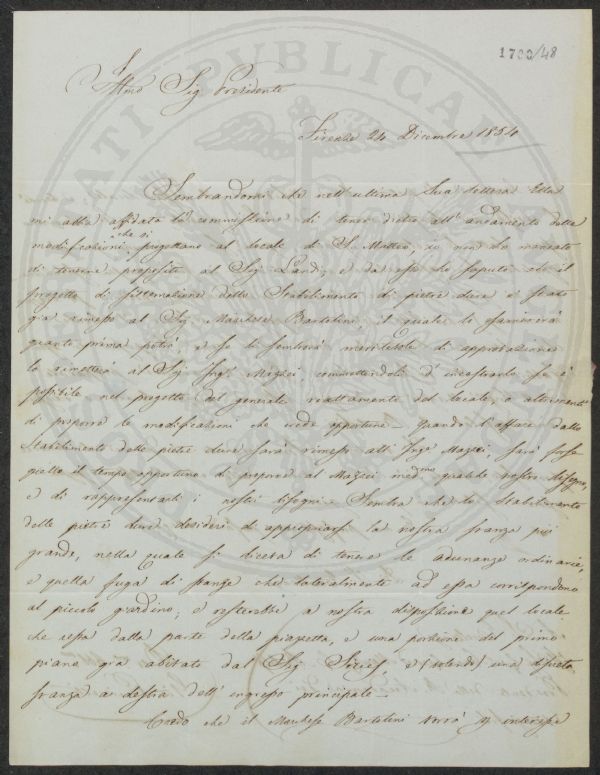 1700/48
Illmo Sig. Presidente
Firenze 24 Dicembre 1854
Sembrandomi che nell'ultima Sua lettera Ella
mi abbia affidata la commissione di tener dietro all'andamento delle
che si
modificazioni progettano al locale di S. Matteo, io non ho mancato
di tenerne proposito al Sig. Landi, e da esso ho saputo che il
progetto di sistemazione dello Stabilimento di pietre dure è stato
già rimesso al Sig. Marchese Bartolini, il quale lo esaminerà
quanto prima potrà, e se lo sembrerà meritevole di approvazione
lo rimetterà al Sig. Ingre Mazzei, commettendoli d'incastrarlo se è
possibile nel progetto del generale riattamento del locale, o altrimenti
di proporre le modificazioni che crede opportune. Quando l'affare dello
Stabilimento delle pietre dure sarà rimesso all'Inge Mazzei sarà forse
quello il tempo opportuno di proporre al Mazzei medmo qualche nostro disegno,
e di rappresentarli i nostri bisogni. Sembra che lo Stabilimento
delle pietre dure desideri di appropriarsi la nostra stanza più
grande, nella quale si diceva di tenere le adunanze ordinarie,
e quella fuga di stanze che lateralmente ad essa corrispondono
al piccolo giardino; e resterebbe a nostra disposizione quel locale
che resta dalla parte della piazzetta, e una porzione del primo
piano già abitato dal Sig. e (volendo) una discreta
stanza a destra dell'ingresso principale.
Credo che il Marchese Bartolini vorrà interesse